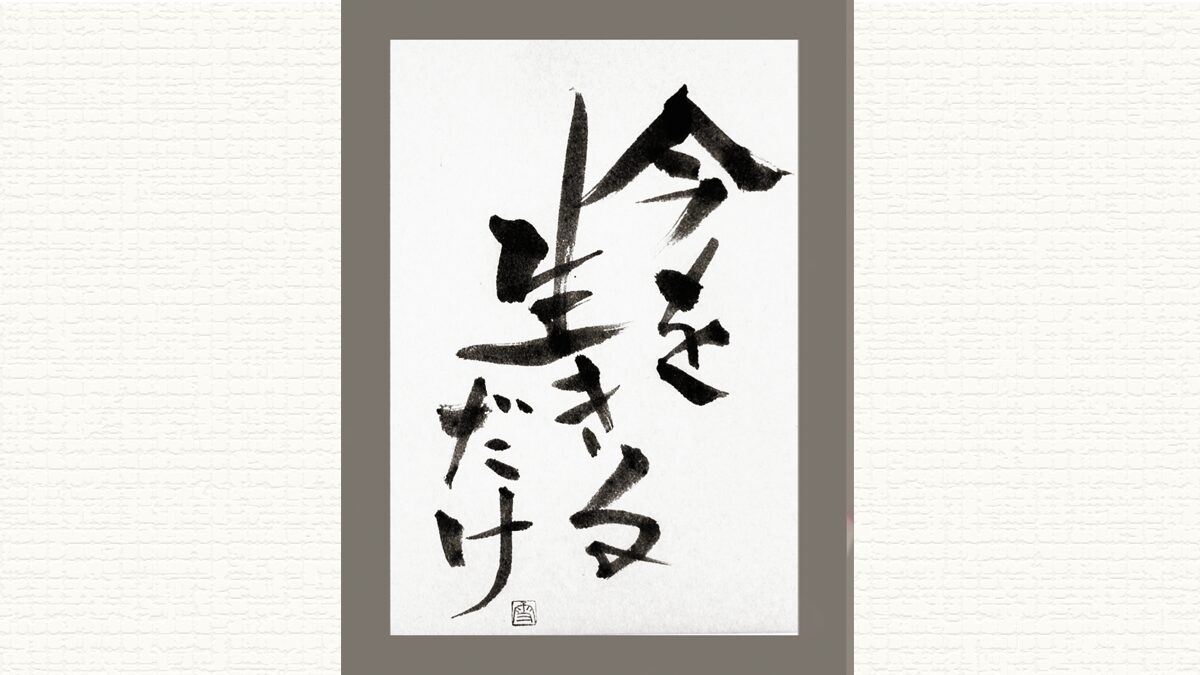 今を
生きる
だけ
雪